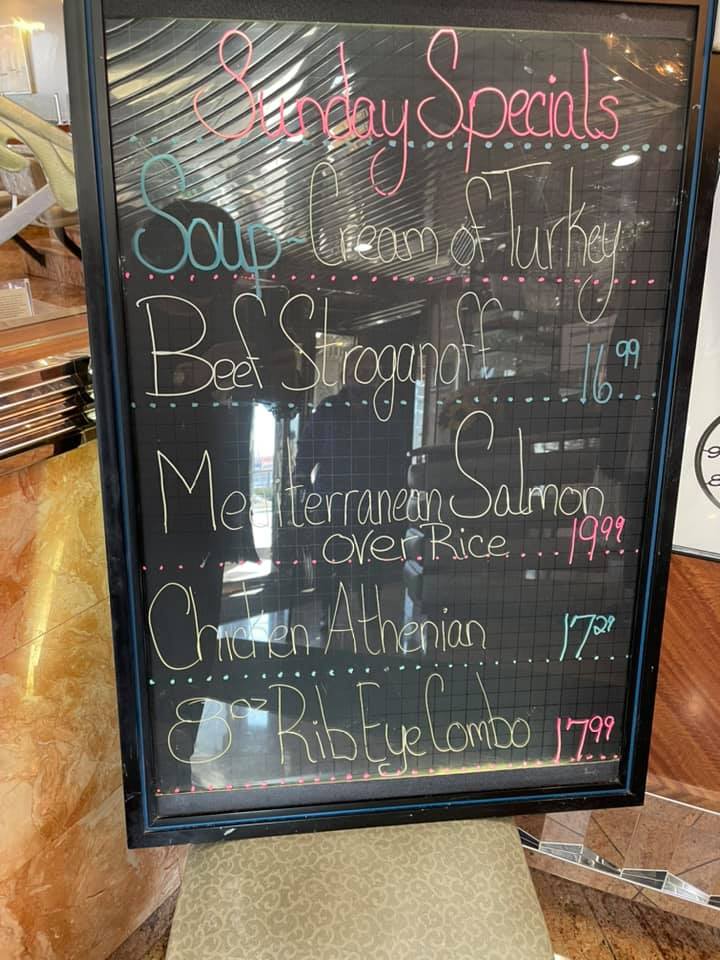 Sunday Specials
Soup - Cream of Turkey
Beef Stroganoff 16.99
Mediterranean Salmon
over Rice 19.99
Chicken Athenian 17.29
8oz Rib Eye Combo 17.99